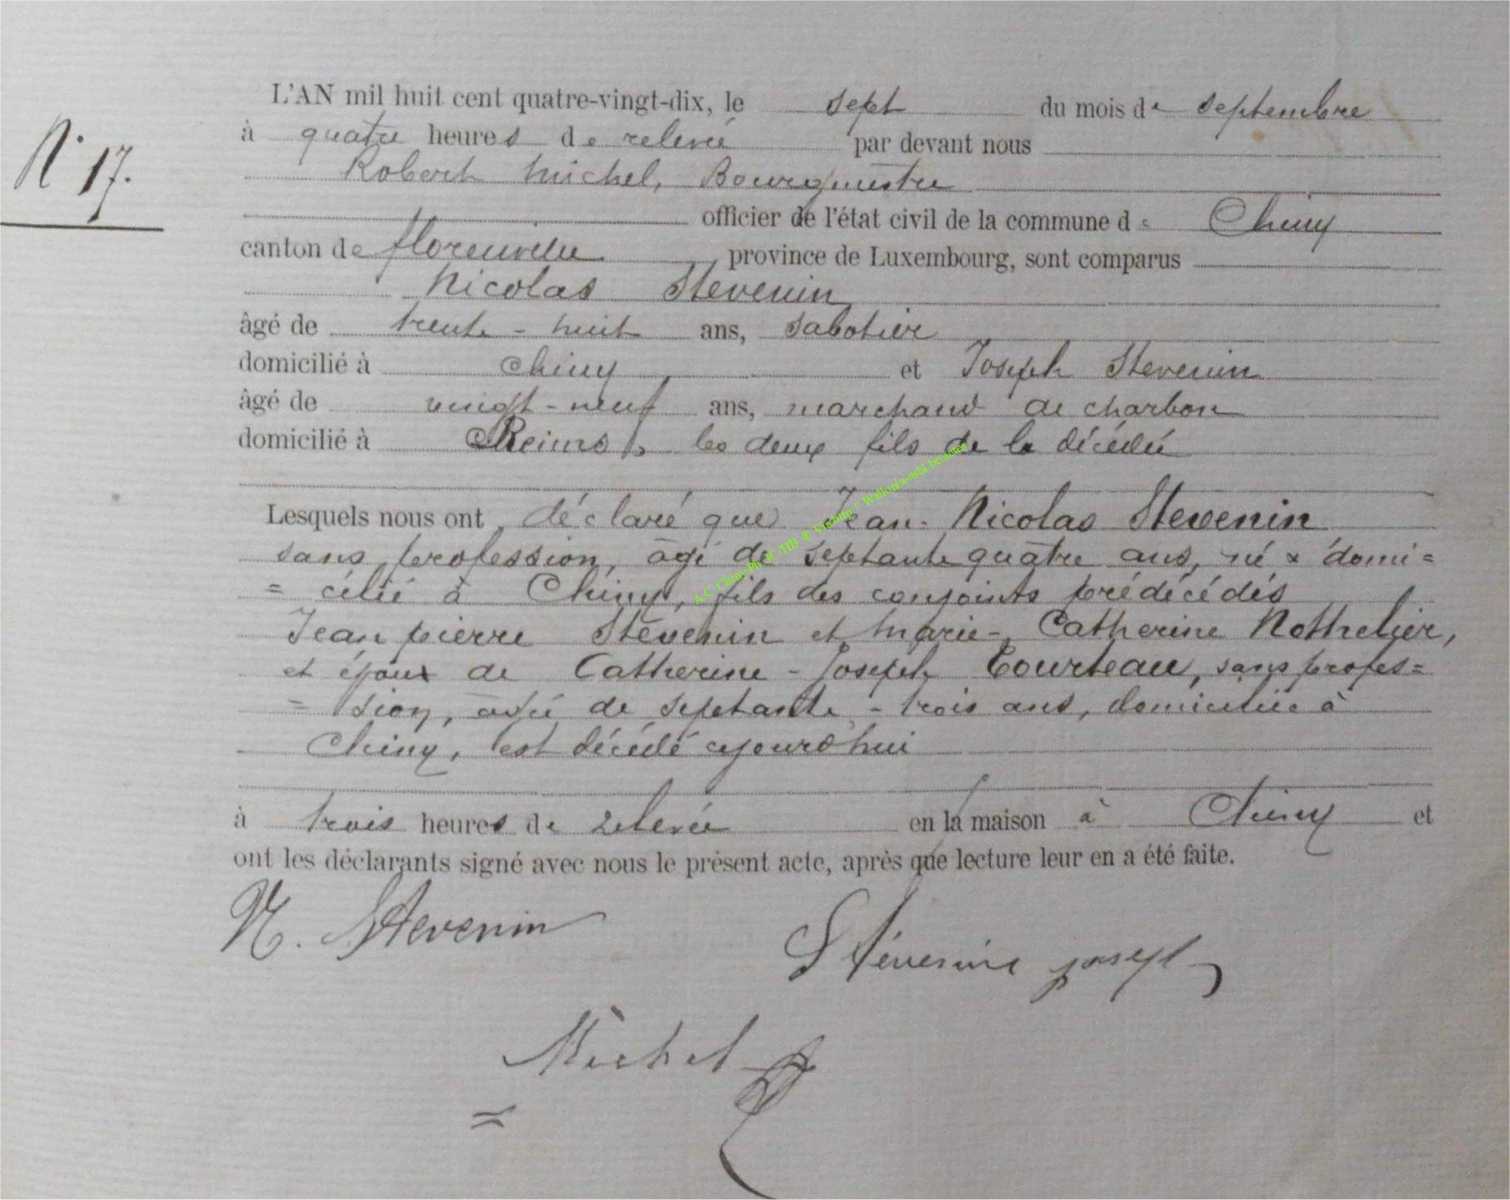 L'AN mil huit cent quatre-vingt-dix, le sept du mois de septembre
à quatre heures de relevée par devant nous
N° 17.
Robert Michel, Bourgmestre
officier de l'état civil de la commune de Chiny
canton de florenville province de Luxembourg, sont comparus
Nicolas Stevenin
âgé de trente-huit ans, sabotier
domicilié à Chiny et Joseph Stevenin
âgé de vingt-neuf ans, marchand de charbon
domicilié à Reims, les deux fils de le décédé
Lesquels nous ont déclaré que Jean-Nicolas Stevenin
sans profession, âgé de septante quatre ans, né & domi=
=cilié à Chiny, fils des conjoints prédécédés
Jean pierre Stévenin et Marie-Catherine Nothelier,
et époux de Catherine-Joseph Courteau, sans profes=
=sion, âgée de septante-trois ans, domiciliée à
Chiny, est décédé aujourd'hui
à trois heures de relevée en la maison à Chiny et
ont les déclarants signé avec nous le présent acte, après que lecture leur en a été faite.
N. Stevenin
Stévenin joseph
Michel R